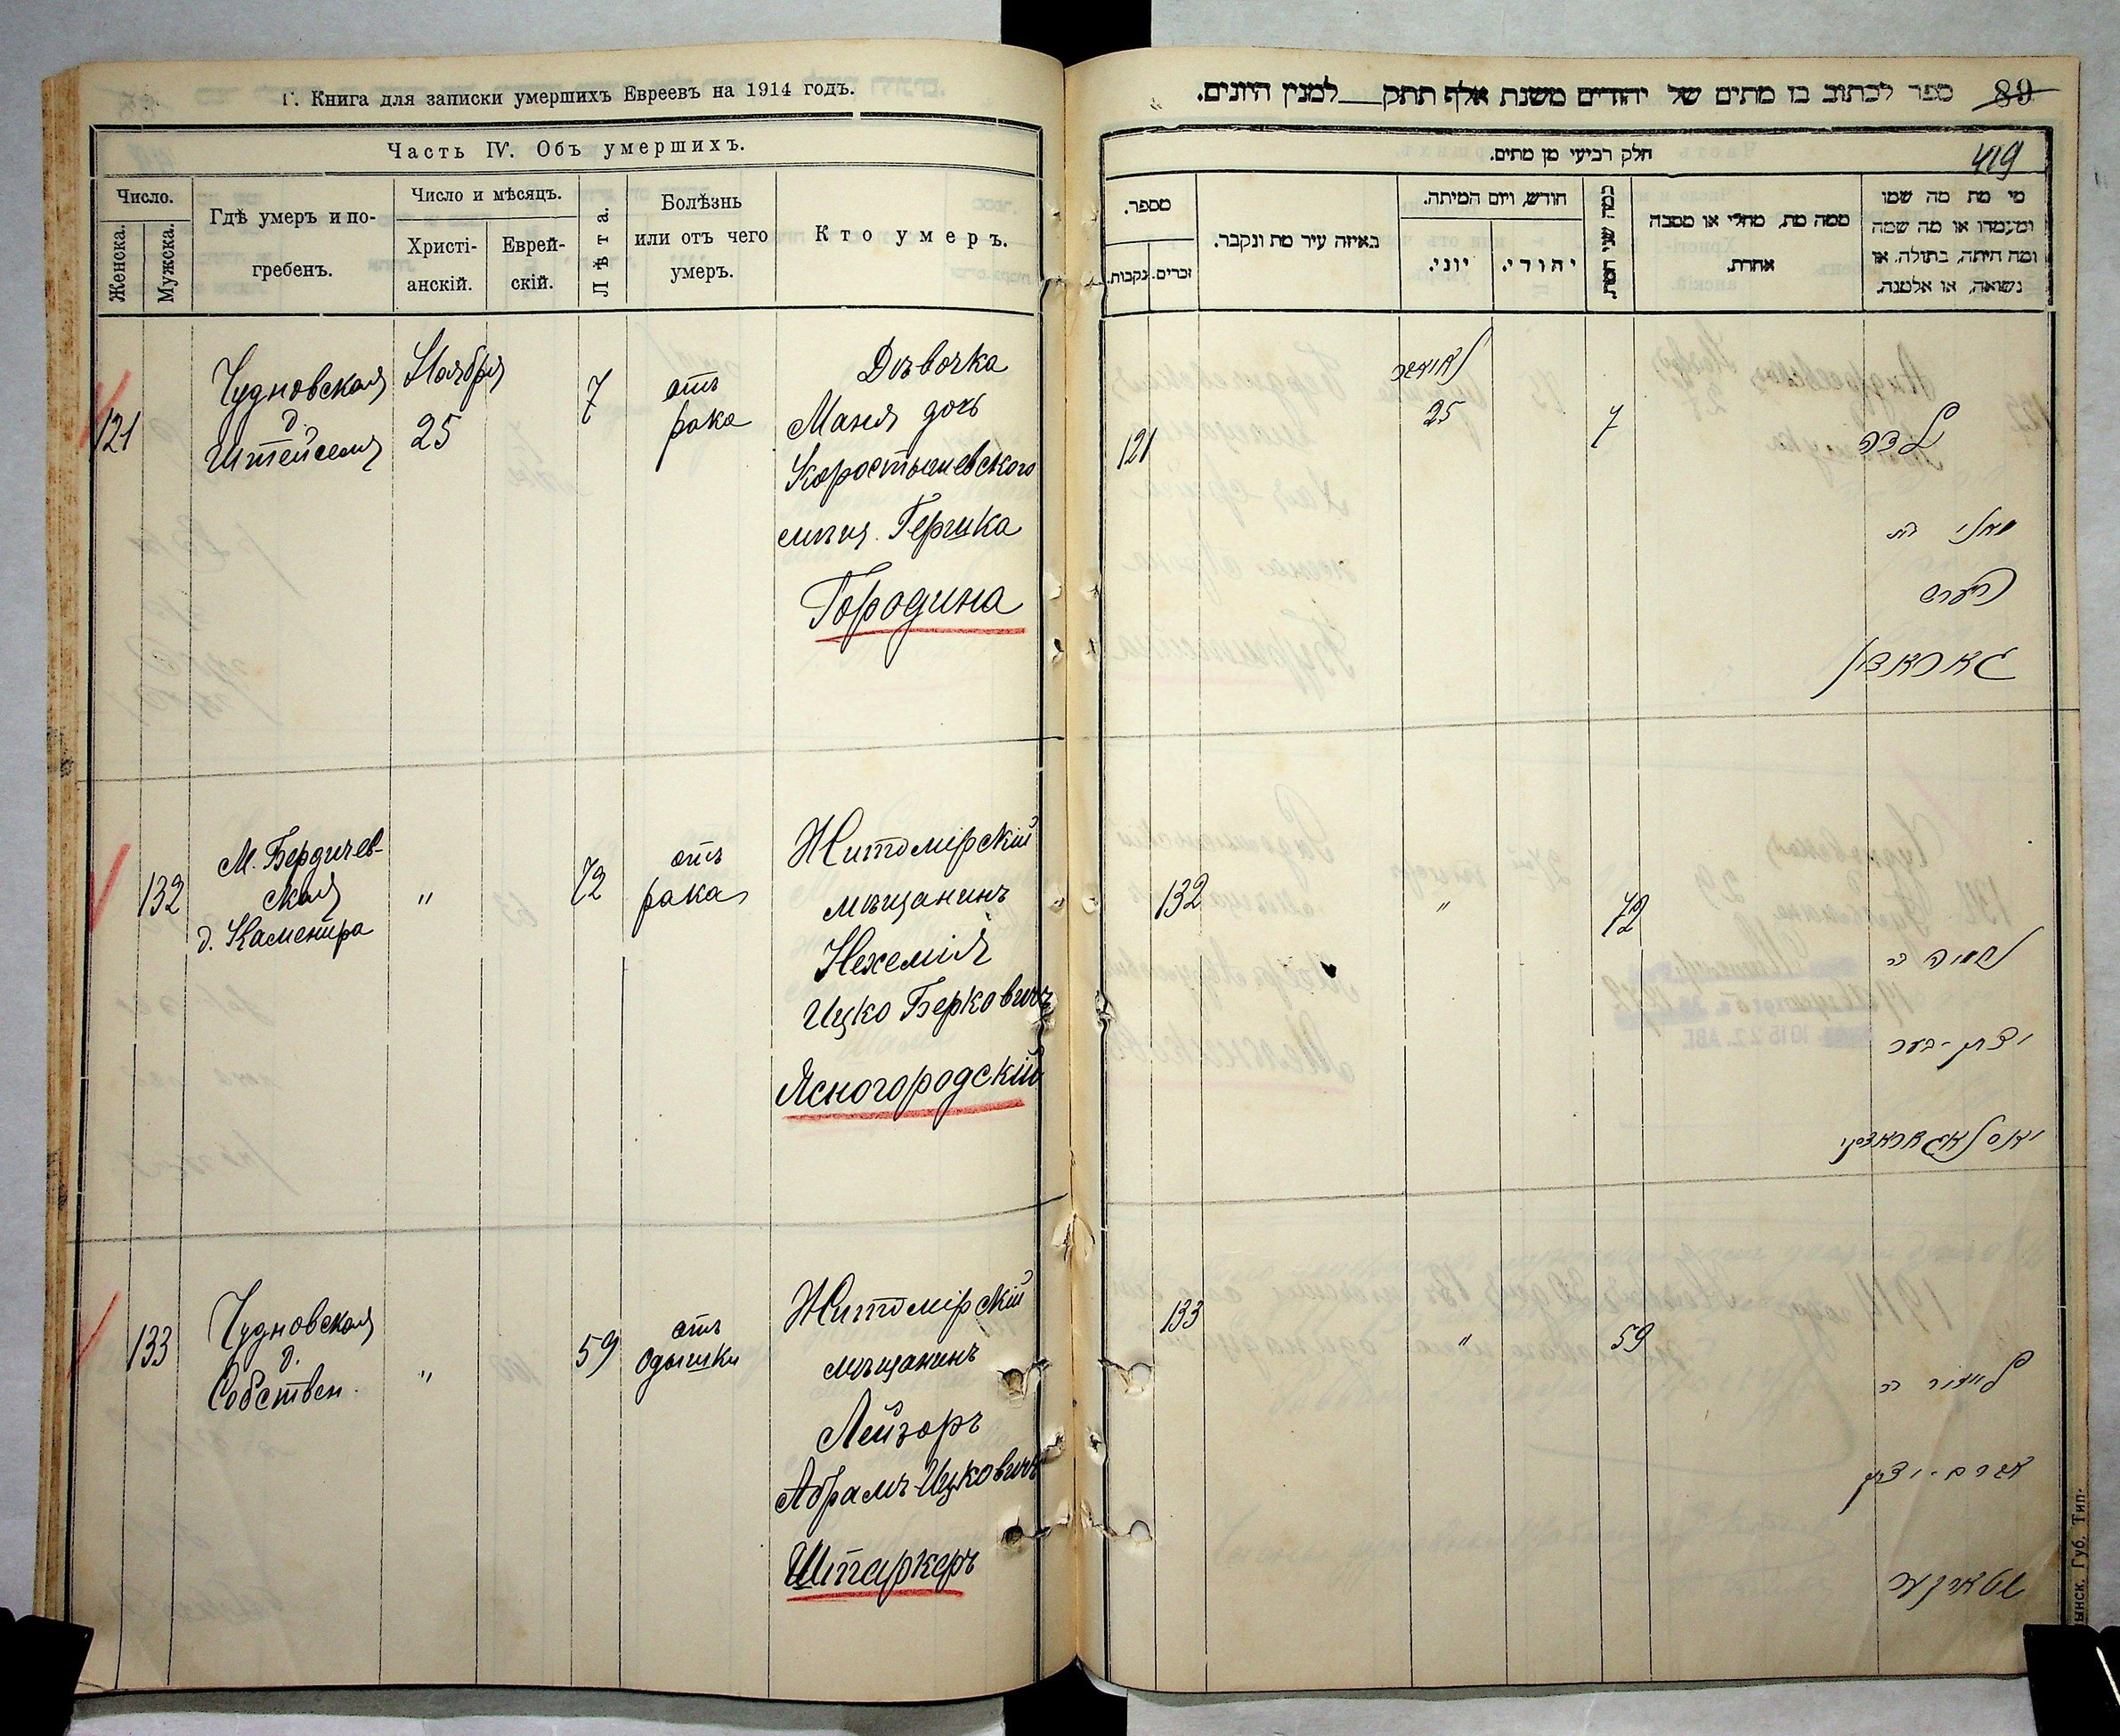 Г. Книга для записки умершихъ Евреевъ на 1914 годъ.
Часть IV. Объ умершихъ.
Число.
Женска.
Мужска.
Гдѣ умеръ и по-
гребенъ.
Число и мѣсяцъ.
Христі-
анскій.
Еврей-
скій.
Лѣта.
Болѣзнь
или отъ чего
умеръ.
Кто умеръ.
121
Чудновская
д
Штейселя
Ноября
25
7
отъ
рака
Дѣвочка
Маня дочь
Коростышевского
мѣщ. Гершка
Городина
132
М. Бердичев-
ская
д. Каменира
"
72
отъ
рака
Житомірскій
мѣщанинъ
Нехемія
Ицко Берковичъ
Ясногородскій
133
Чудновская
д.
Собствен.
"
59
отъ
одышки
Житомірскій
мѣщанинъ
Лейзоръ
Абрамъ-Ицковичъ
Штаркеръ
ספר לכתוב בו מתים של יהודים משנת אלף תתק למנין היונים.
89
חלק רביעי מן מתים.
419
מספר.
נקבות.
זכרים.
באיזה עיר מת ונקבר.
חודש, ויום המיתה.
יוני.
יהודי.
כמה שני המת
ממה מת, מחלי או מסבה
אחרת.
מי מת מה שמו
ומעמדו או מה שמה
ומה היתה, בתולה, או
נשואה, או אלמנה.
121
נאיאבר
25
7
ילדה
מאני בת
הערש
גאראדין
132
"
72
נחמיה בר
יצחק-בער
יאסנאגאראדסקי
133
"
59
לייזור בר
אברם-יצחק
שטארקער
ынск. Губ. Тип.